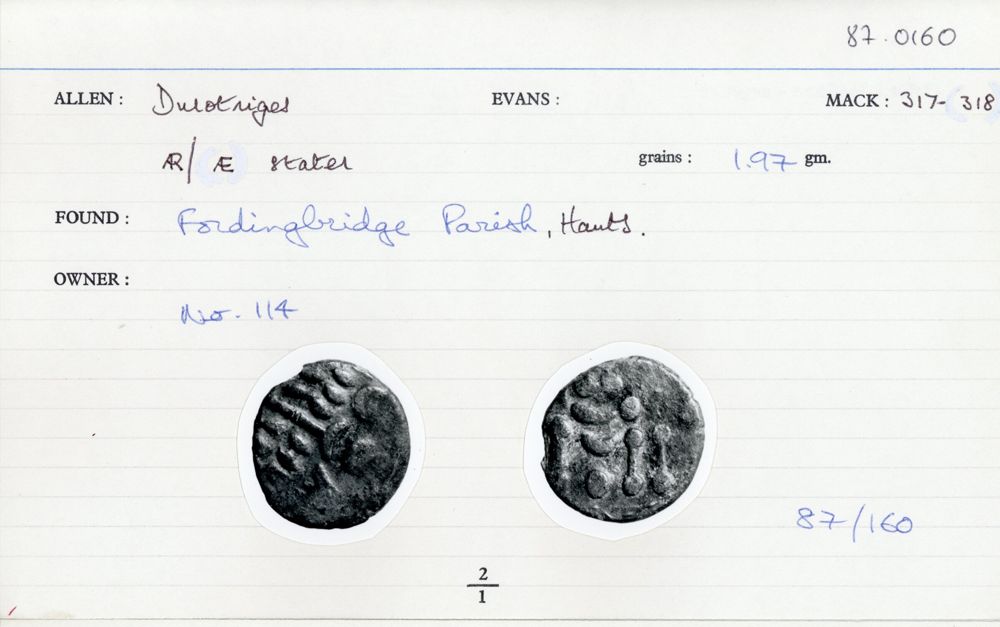 87.0160
ALLEN : Durotriges EVANS : MACK : 317-318
AR/Æ stater grains : 1.97 gm.
FOUND : Fordingbridge Parish, Hants.
OWNER :
No. 114
87/160
2
1